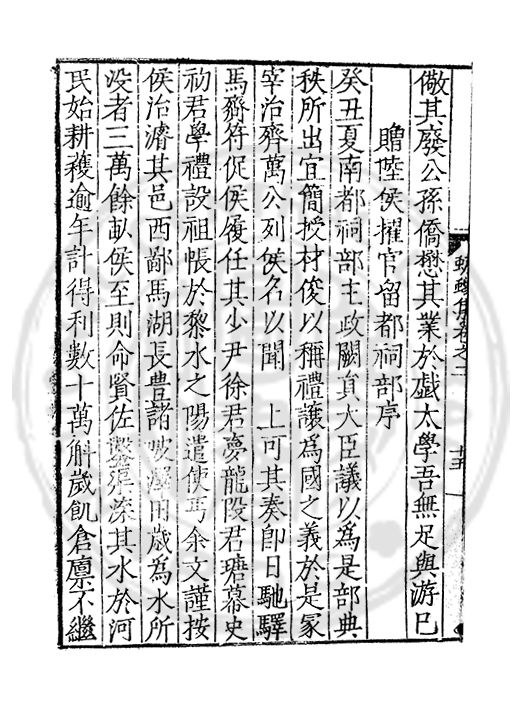 儆其廢公孫僑懋其業於戲太學吾無足與游巳
贈陸侯擢官留都祠部序
癸丑夏南都祠部主政闕員大臣議以為是部典
秩所出宜簡授材俊以稱禮讓為國之義於是冢
宰治齊萬公列侯名以聞　上可其奏卽日馳驛
馬齎符促侯履任其少尹徐君夢龍陵君瑭幕史
初君學禮設祖帳於黎水之陽遣使丐余文謹按
侯治濬其邑西鄙馬湖長豊諸陂湖田歲為水所
没者三萬餘畝侯至則命賢佐鑿渠深其水於河
民始耕穫逾年計得利數十萬斛歲飢倉廪不繼
蠛蠓集卷之二
十五